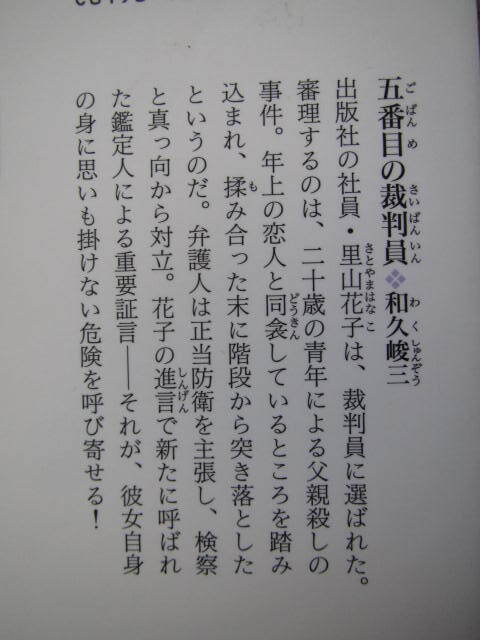 五番目の裁判員❖和久峻三
出版社の社員・里山花子は、裁判員に選ばれた。
審理するのは、二十歳の青年による父親殺しの
事件。年上の恋人と同衾しているところを踏み
込まれ、揉み合った末に階段から突き落とした
というのだ。弁護人は正当防衛を主張し、検察
と真っ向から対立。花子の進言で新たに呼ばれ
た鑑定人による重要証言――それが、彼女自身
の身に思いも掛けない危険を呼び寄せる！